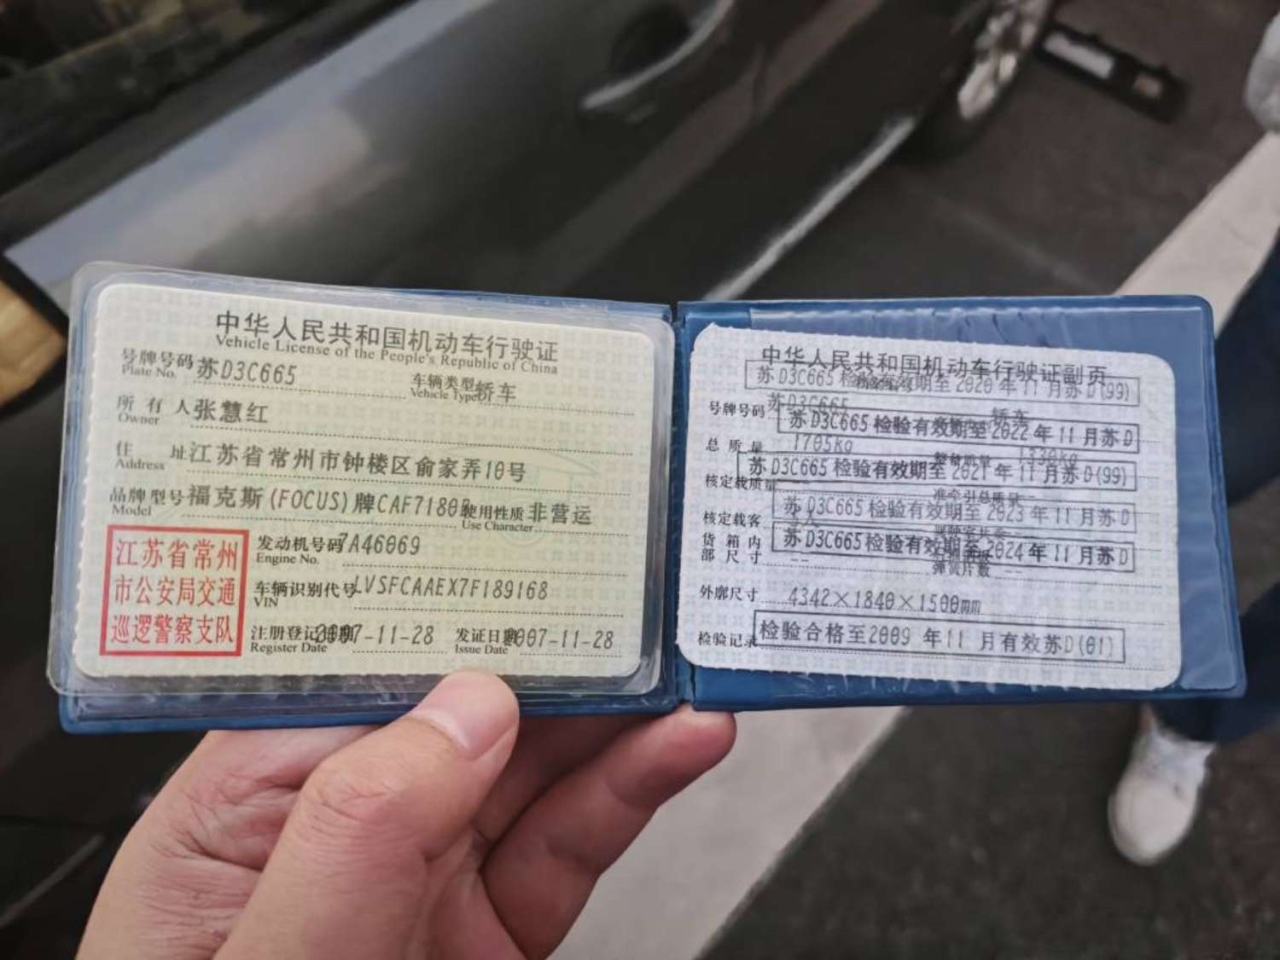 中华人民共和国机动车行驶证
Vehicle License of the People's Republic of China
号牌号码 苏D3C665 车辆类型 轿车
Plate No. Vehicle Type
所有人 张慧红
Owner
住址 江苏省常州市钟楼区俞家弄10号
Address
品牌型号 福克斯(FOCUS)牌CAF7180 使用性质 非营运
Model Use Character
江苏省常州
市公安局交通
巡逻警察支队
发动机号码 7A46069
Engine No.
车辆识别代号 LVSFCAAEX7F189168
VIN
注册登记日期 2007-11-28 发证日期 2007-11-28
Register Date Issue Date
中华人民共和国机动车行驶证副页
苏D3C665 检验有效期至2020年11月苏D(99)
号牌号码 苏D3C665 轿车
苏D3C665 检验有效期至2022年11月苏D
总质量 1705KG
苏D3C665 检验有效期至2021年11月苏D(99)
核定载质量 准牵引总质量
苏D3C665 检验有效期至2023年11月苏D
核定载客
苏D3C665 检验有效期至2024年11月苏D
货箱内
部尺寸 --
外廓尺寸 4342×1840×1500mm
检验记录 检验合格至2009年11月有效苏D(01)